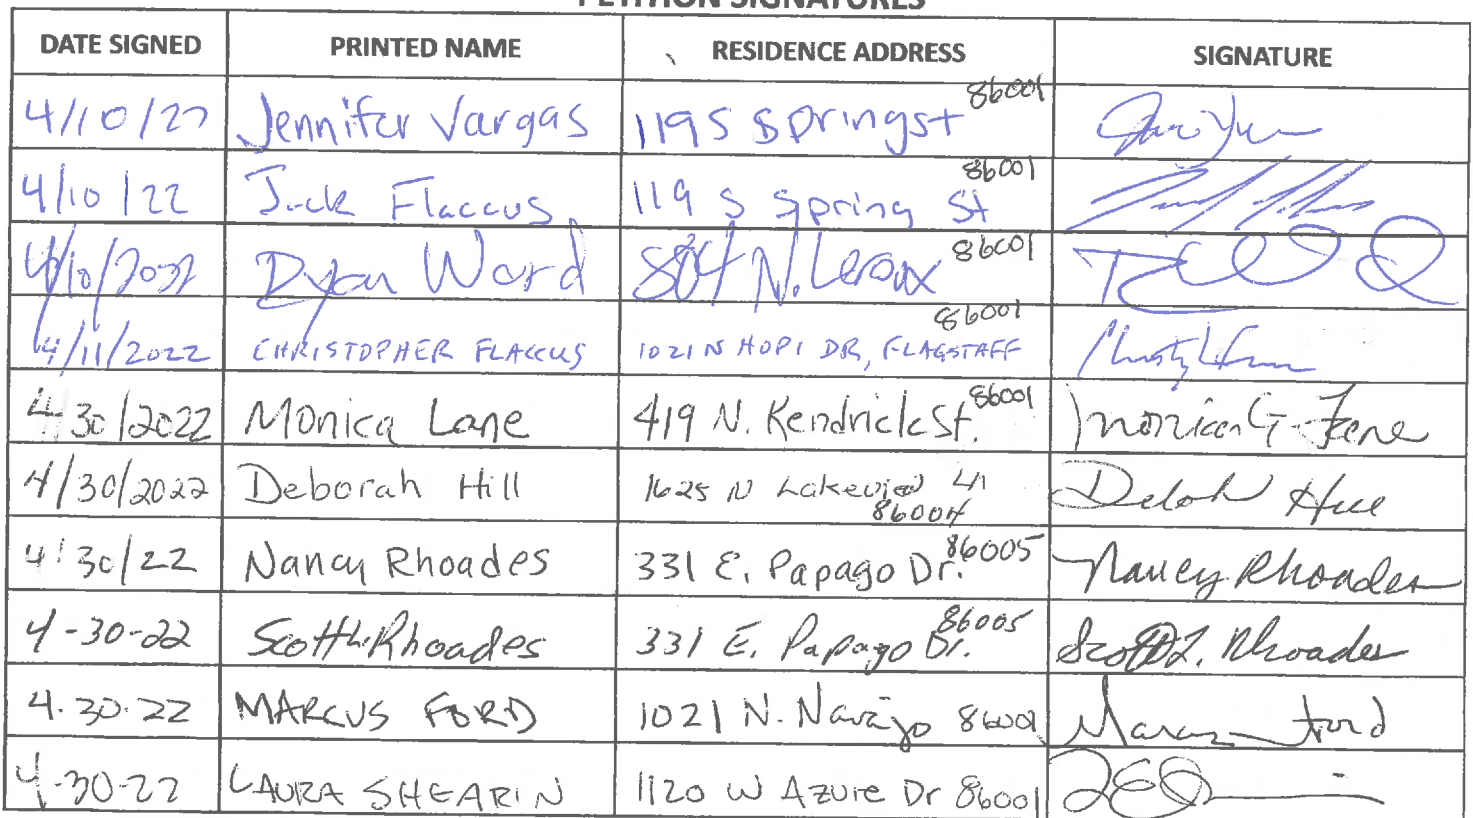 PETITION SIGNATURES
DATE SIGNED PRINTED NAME RESIDENCE ADDRESS SIGNATURE
4/10/22 Jennifer Vargas 119 S Springst 86001
4/10/22 Jack Flaccus 119 S Spring St 86001
4/10/2022 Dyan Ward 804 N. Leroux 86001
4/11/2022 CHRISTOPHER FLACCUS 1021 N HOPI DR, FLAGSTAFF 86001
4/30/2022 Monica Lane 419 N. Kendrick St. 86001 Monica G Lane
4/30/2022 Deborah Hill 1625 N Lakeview Ln 86004 Deborah Hill
4/30/22 Nancy Rhoades 331 E. Papago Dr. 86005 Nancy Rhoades
4-30-22 Scott L. Rhoades 331 E. Papago Dr. 86005 Scott L. Rhoades
4.30.22 MARCUS FORD 1021 N. Navajo 86001 Marcus Ford
4-30-22 LAURA SHEARIN 1120 W Azure Dr 86001